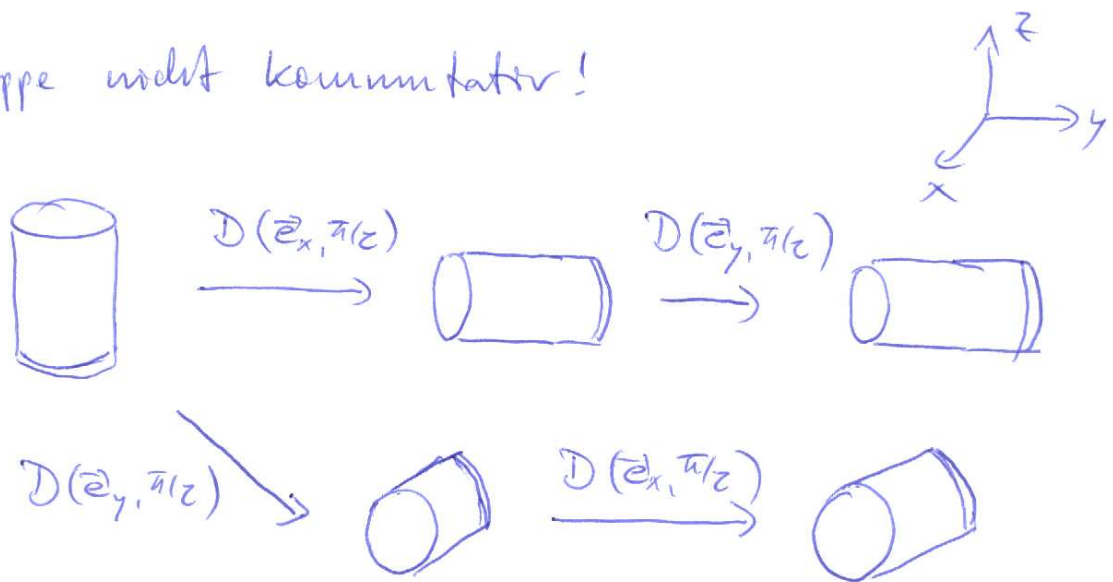 ppe nicht kommutativ!
z
y
x
D(e⃗x, π/2) D(e⃗y, π/2)
D(e⃗y, π/2) D(e⃗x, π/2)